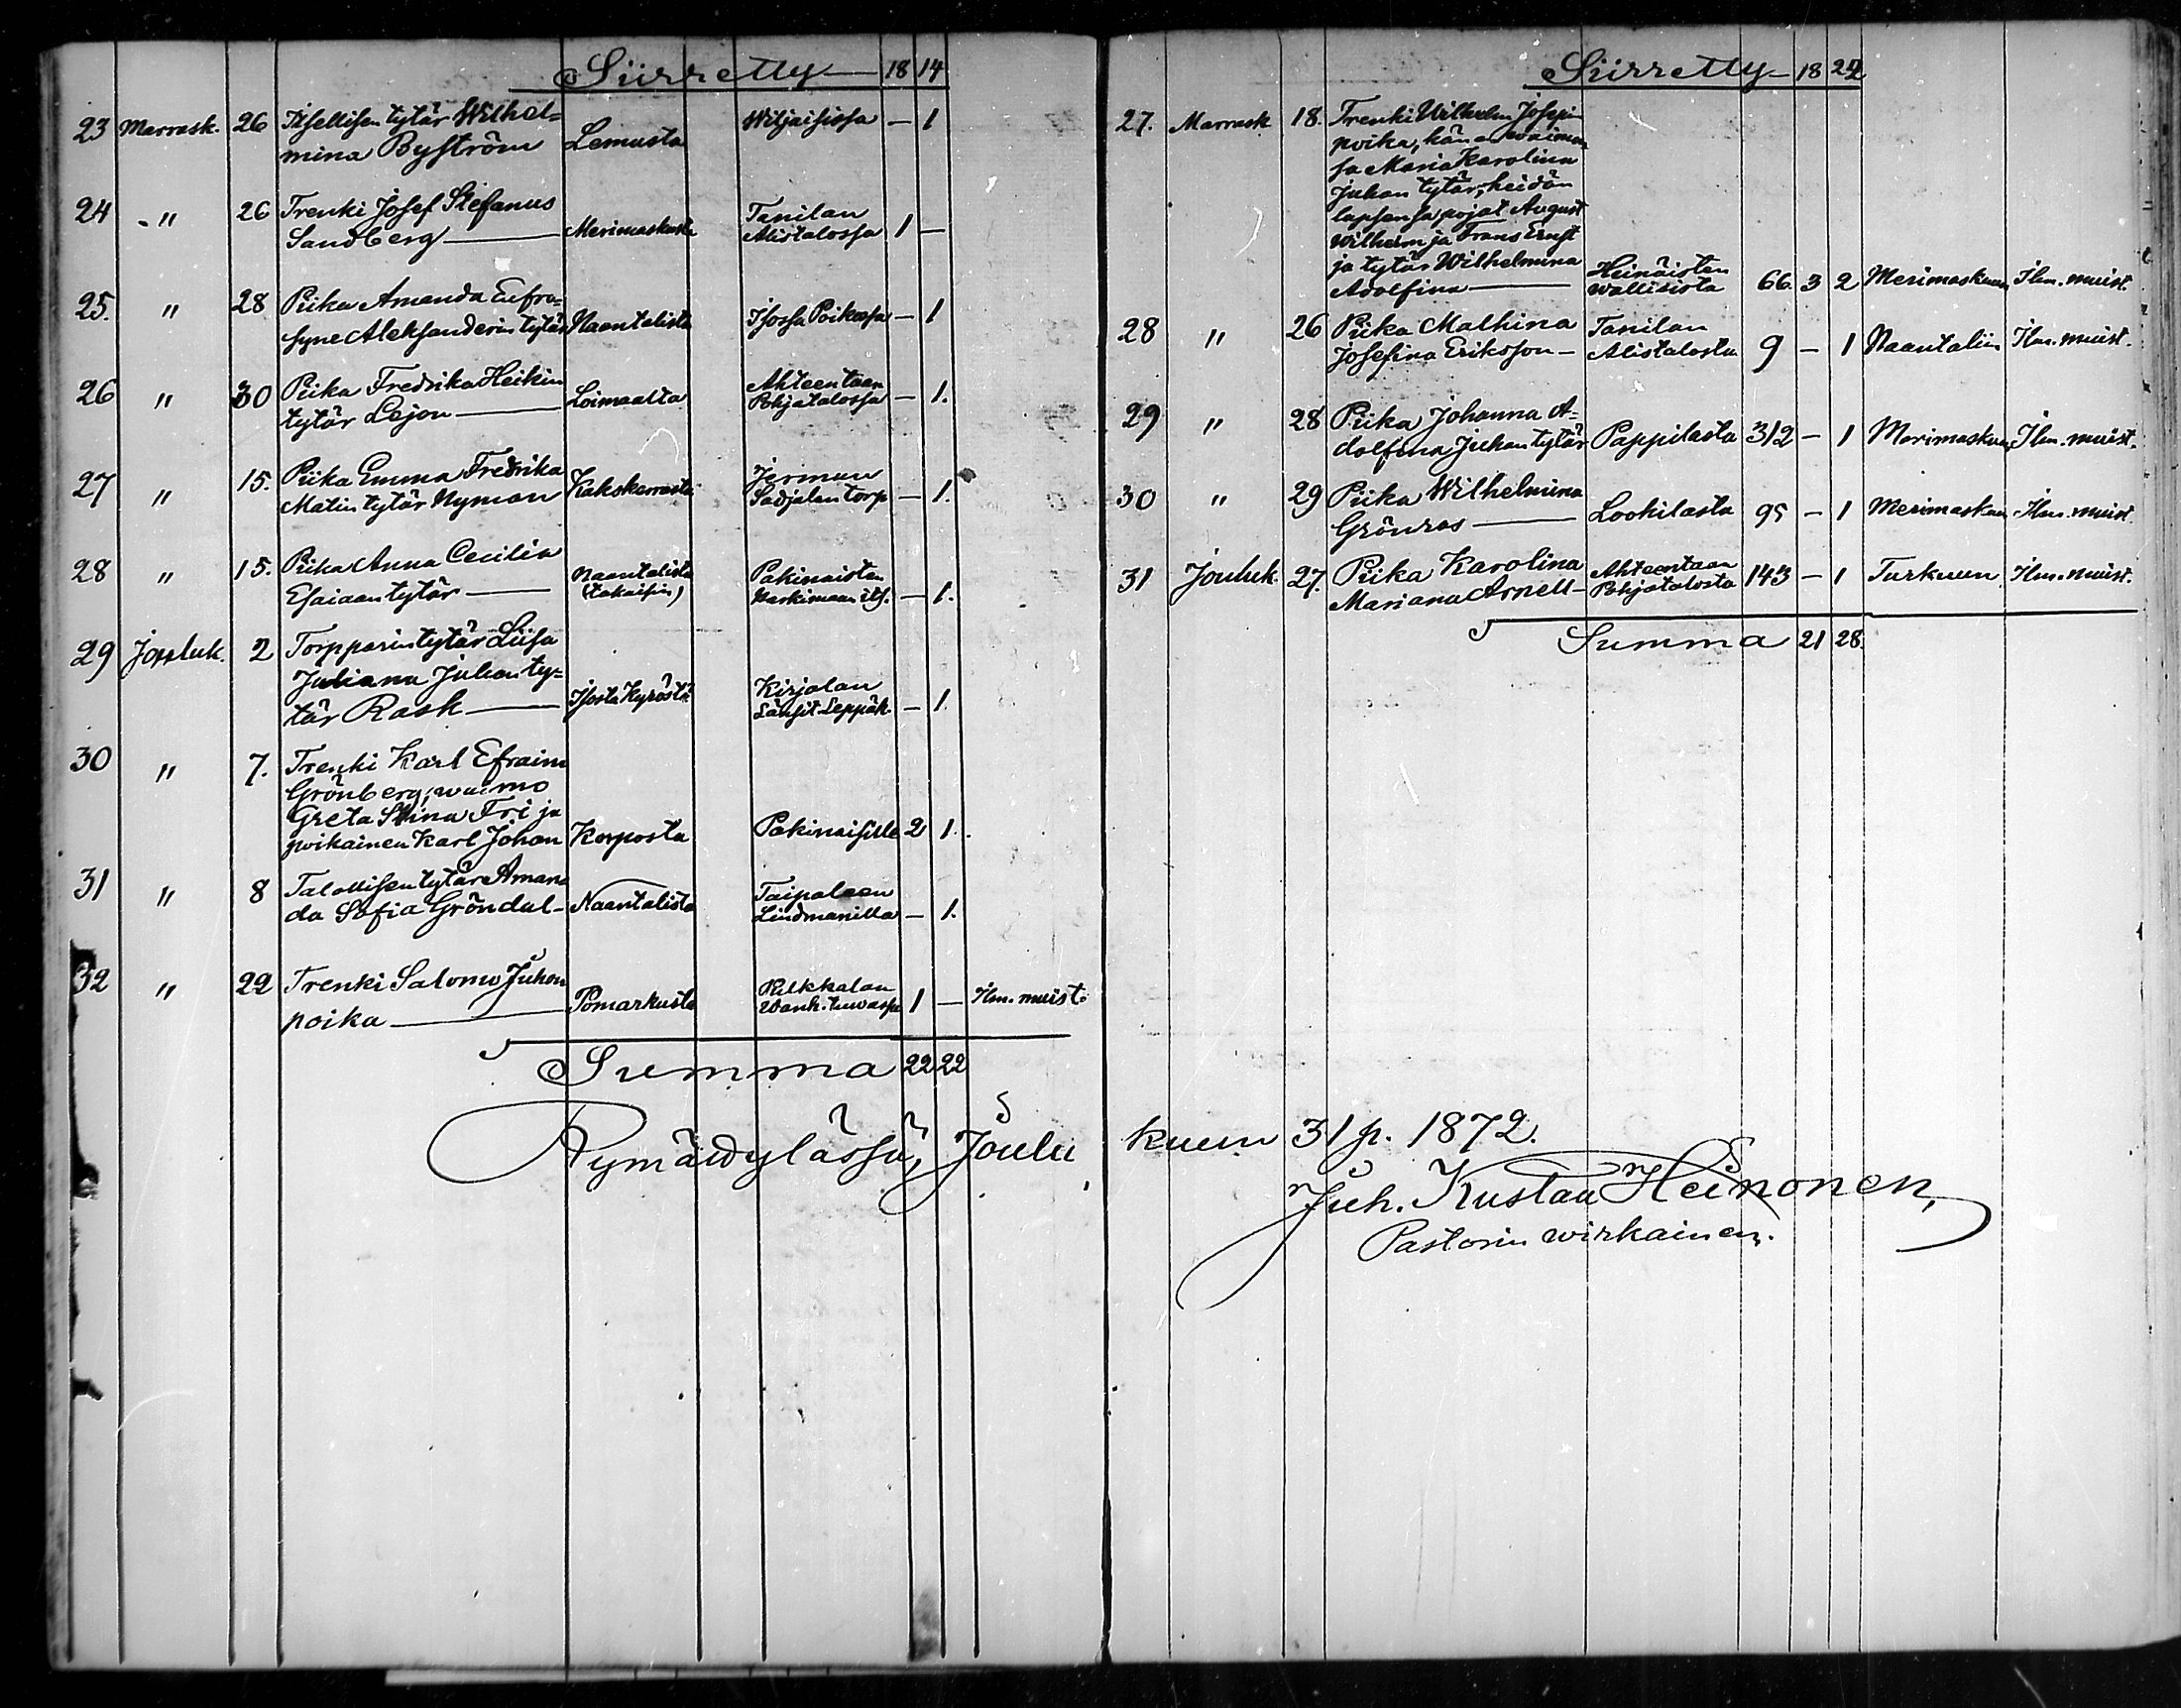 Siirretty 18 14
23 Marrask. 26 Itsellisen tytär Wilhel=
mina Byström Lemusta Wiljaisissa — 1
24 " 26 Trenki Josef Stefanus
Sandberg Merimaskusta Tanilan Alistalossa 1 —
25. " 28 Piika Amanda Eufro=
syne Aleksanderin tytär Naantalista Isossa Poikossa — 1
26 " 30 Piika Fredrika Heikin
tytär Lejon Loimaalta Ahteentaan Pohjatalossa — 1.
27 " 15. Piika Emma Fredrika
Matin tytär Nyman Kakskerrasta torp — 1.
28 " 15. Piika Anna Cecilia
Esaiaan tytär Naantalista (takaisin) Pakinaisten its. — 1.
29 Jouluk. 2 Torpparin tytär Liisa
Juliana Juhan ty=
tär Rask Isosta Kyröstä Kirjalan Länsit. Leppäk. — 1.
30 " 7. Trenki Karl Efraim
Grönberg, waimo
Greta Stina Fri ja
poikainen Karl Johan Korposta Pakinaisille 2 1.
31 " 8 Talollisen tytär Aman=
da Sofia Gröndal Naantalista Taipaleen Lindmanilla — 1.
32 " 22 Trenki Salomo Juhan
poika Pomarkusta Wanh. tuwassa 1 — Ilm. muist.
Summa 22 22
Siirretty 18 22
27. Marrask 18. Trenki Wilhelm Josepin
poika, hänen waimon
sa Maria Karolina
Juhan tytär, heidän
lapsensa pojat August
Wilhelm ja Frans Ernst
ja tytär Wilhelmina
Adolfina Heinäisten Wallisista 66. 3 2 Merimaskuun Ilm. muist.
28 " 26 Piika Mathina
Josefina Eriksson Tanilan Alistalosta 9 — 1 Naantaliin Ilm. muist.
29 " 28 Piika Johanna A=
dolfina Juhan tytär Pappilasta 312 — 1 Merimaskuun Ilm. muist.
30 " 29 Piika Wilhelmina
Grönros Lookilasta 95 — 1 Merimaskuun Ilm. muist.
31 Jouluk 27. Piika Karolina
Mariana Arnell Ahteentaan Pohjatalosta 143 — 1 Turkuun Ilm. muist.
Summa 21 28.
Rymäwdylässä, Joulu kuun 31 p. 1872.
Juh. Kustaa Heinonen,
Pastorin wirkainen.